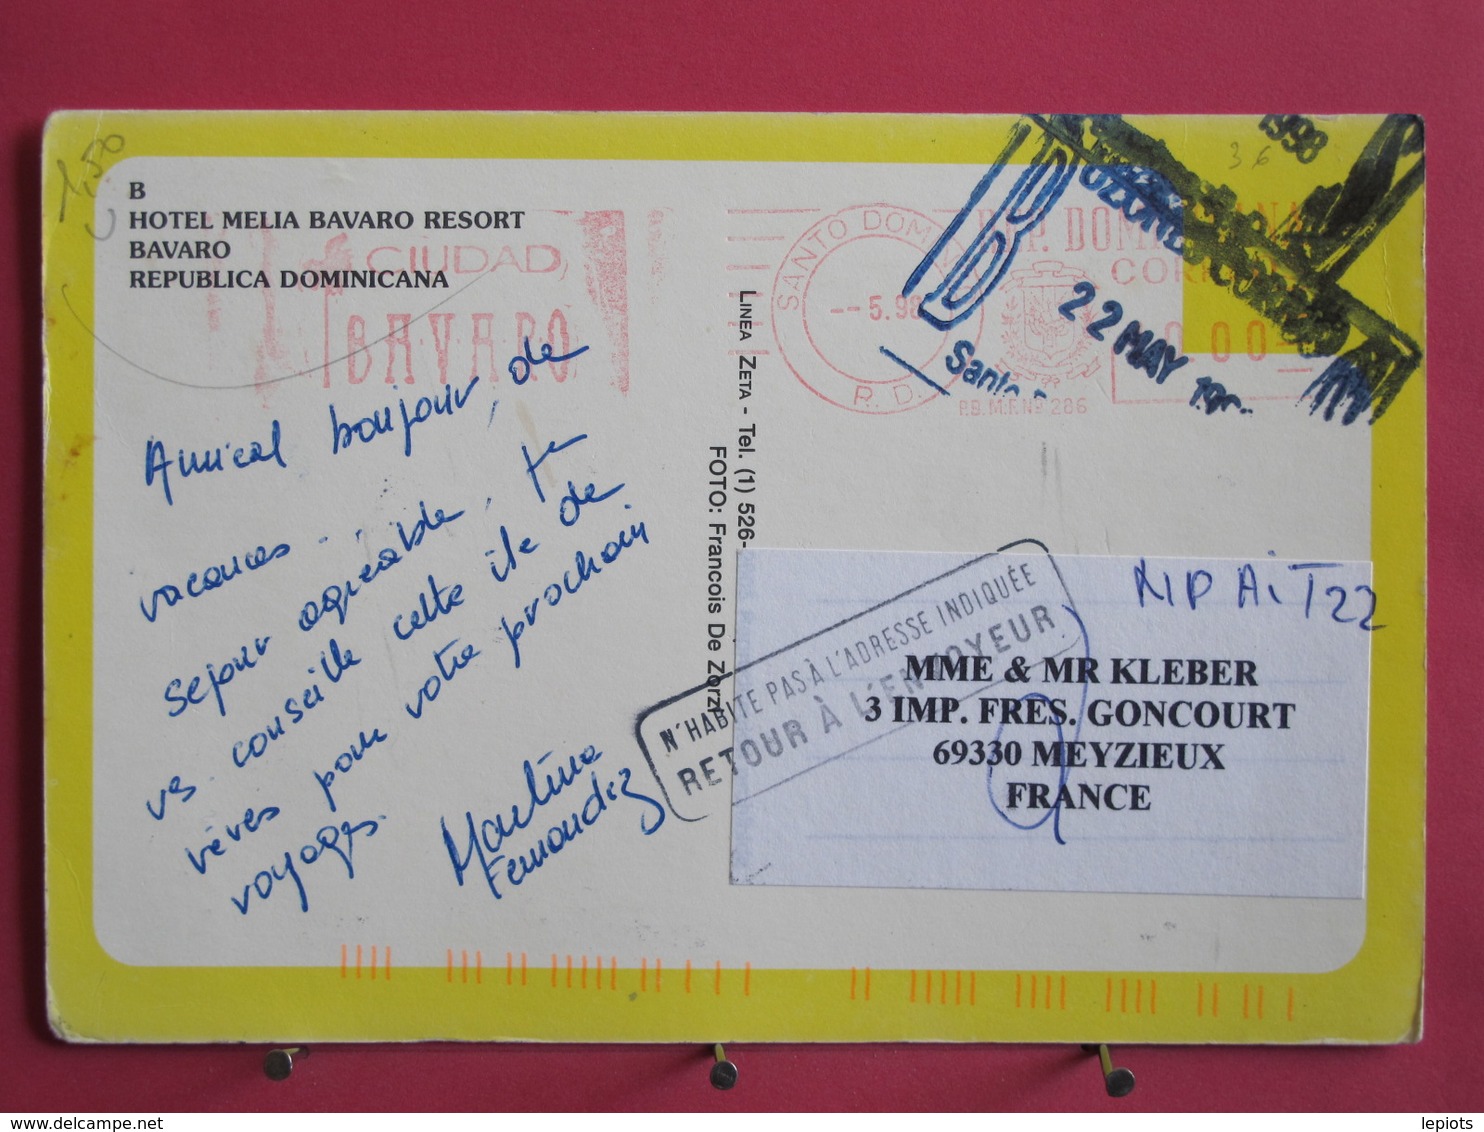 1,50
B
HOTEL MELIA BAVARO RESORT
BAVARO
REPUBLICA DOMINICANA
CIUDAD
BAVARO
Amical bonjour, de
vacances...
séjour agréable, je
vs. conseille cette île de
rêves pour votre prochain
voyages.
Martine
Fernandez
LINEA ZETA - Tel. (1) 526-
FOTO: Francois De Zorzi
SANTO DOM
R. D.
--5.98
P. DOM
COR
.00
P.B.M.F. Nº 286
B
1998
22 MAY
36
N'HABITE PAS À L'ADRESSE INDIQUÉE
RETOUR À L'ENVOYEUR
MME & MR KLEBER
3 IMP. FRES. GONCOURT
69330 MEYZIEUX
FRANCE
lepiots